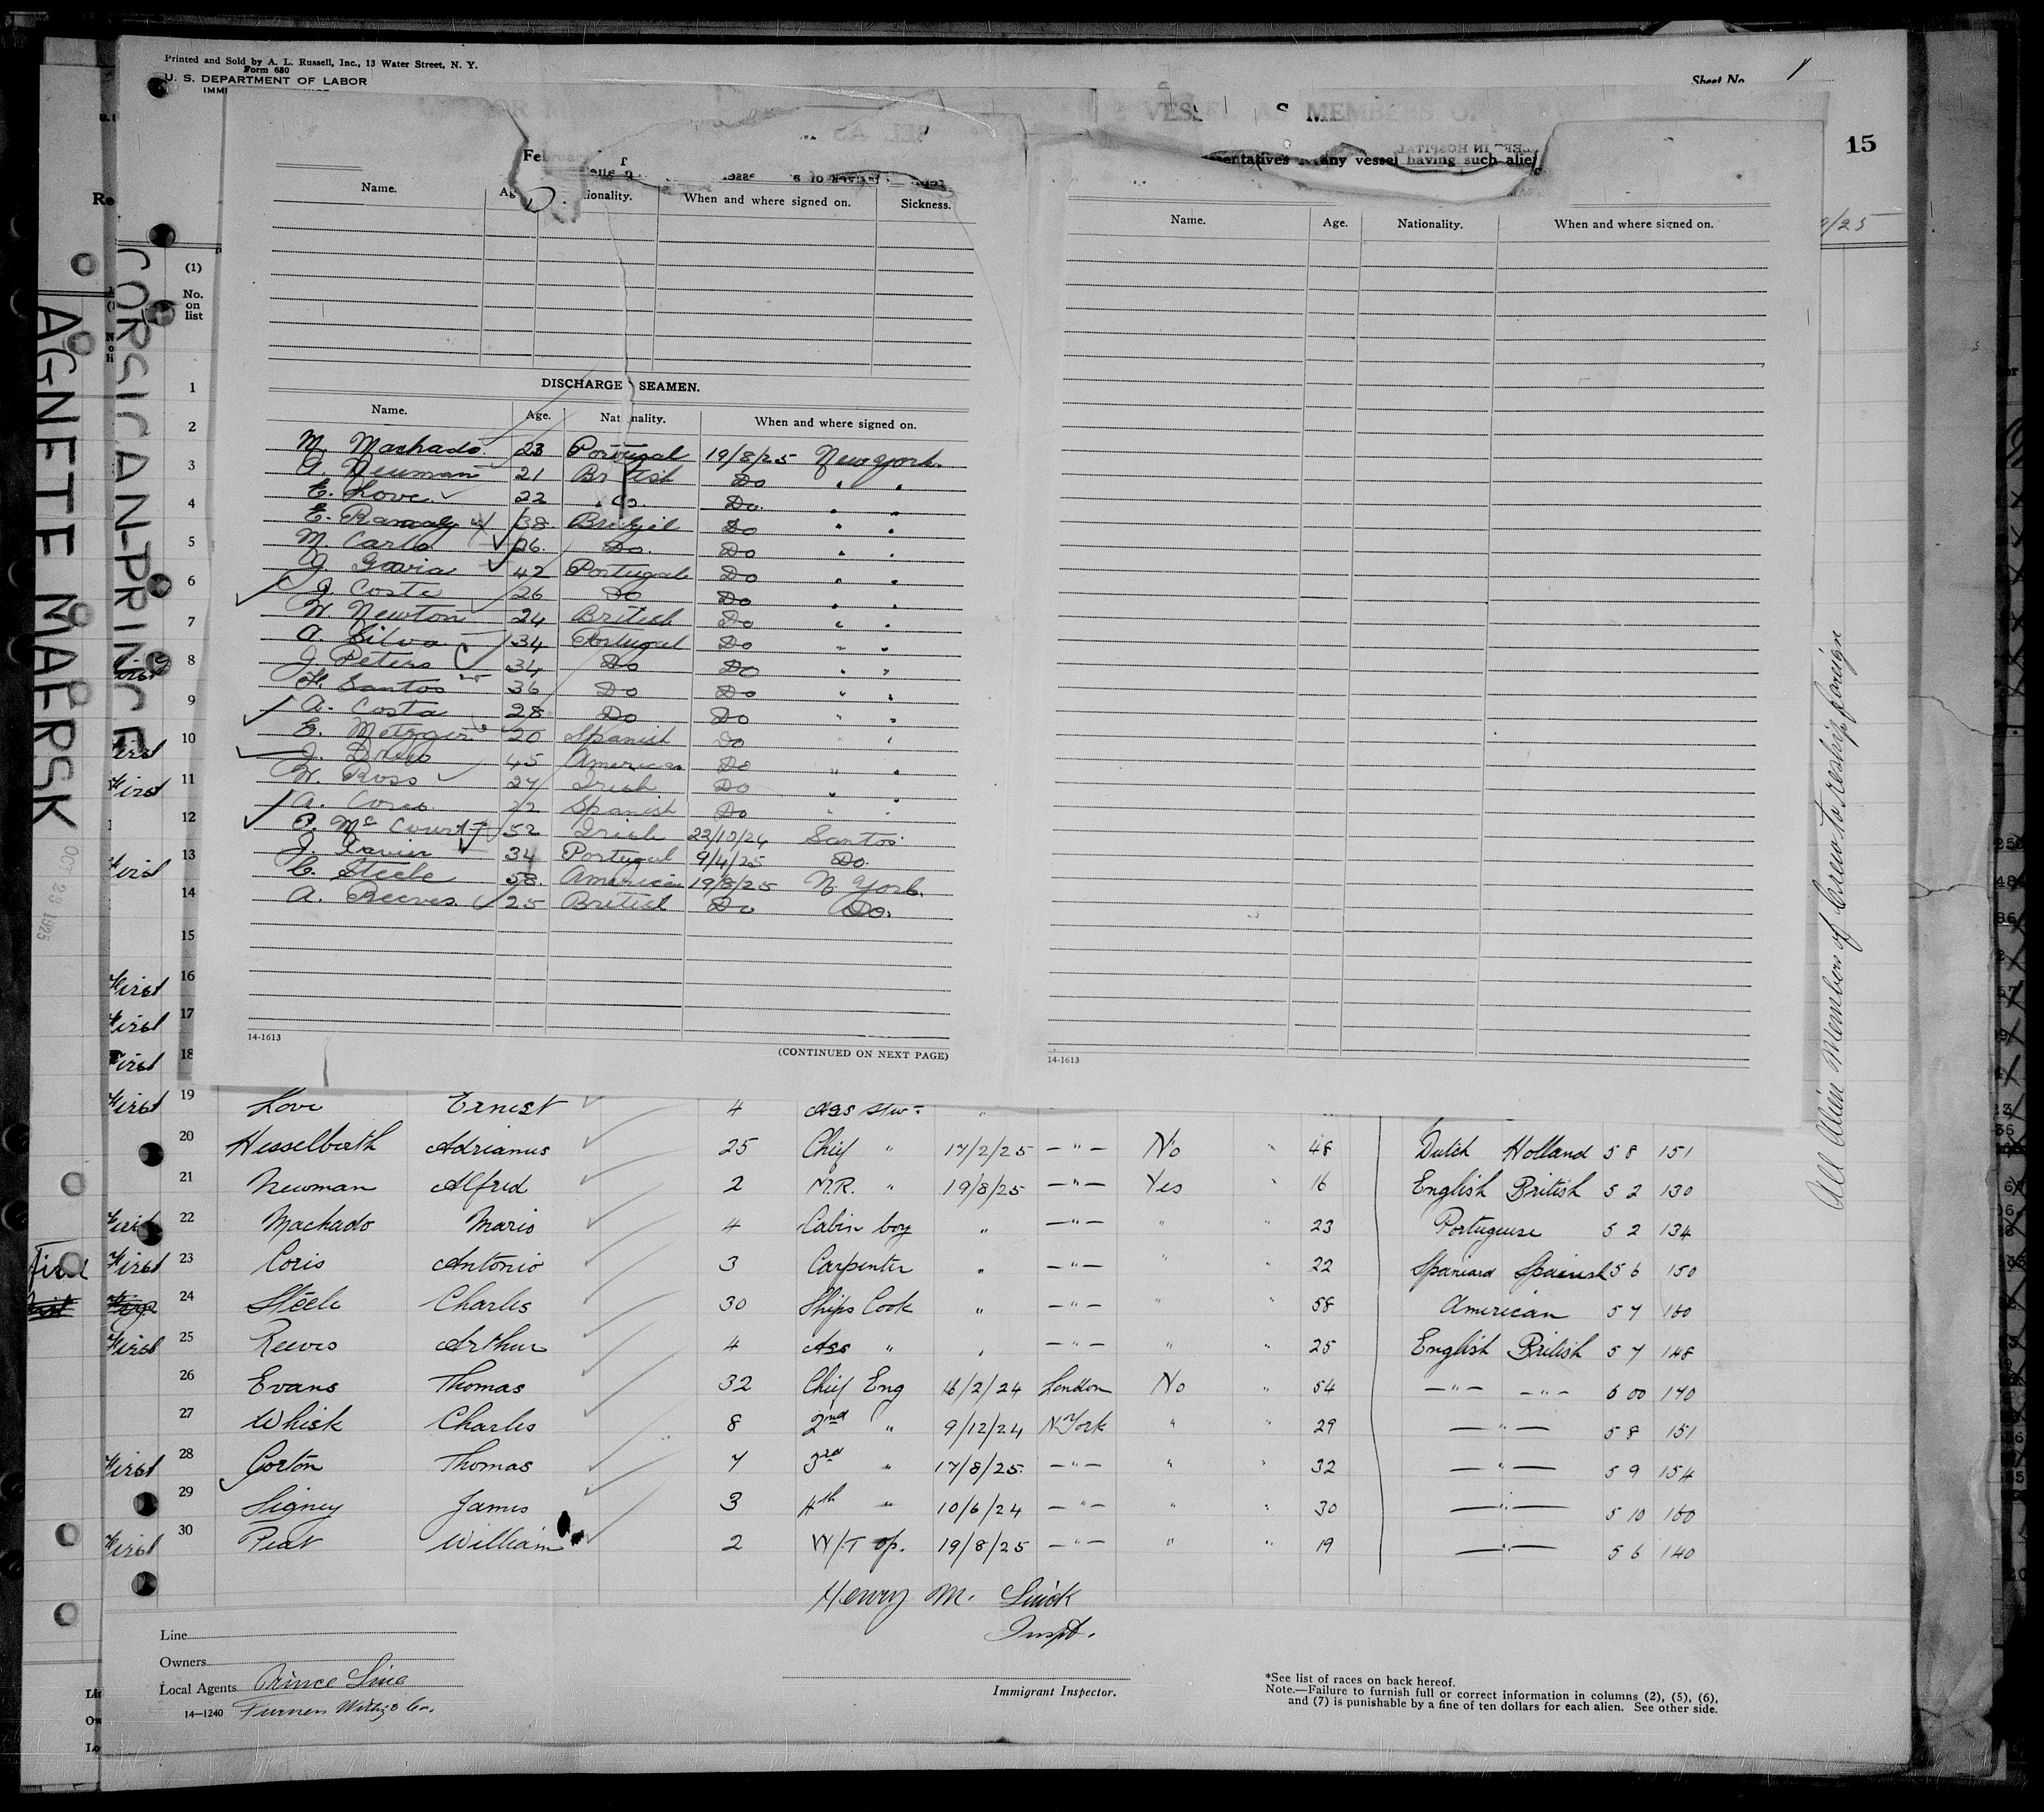 Printed and Sold by A. L. Russell, Inc., 13 Water Street, N. Y.
Form 680
U. S. DEPARTMENT OF LABOR
Sheet No. 1
15
VESSEL AS MEMBERS OF
any vessel having such alien
Name. Age. Nationality. When and where signed on. Sickness.
Name. Age. Nationality. When and where signed on.
(1)
No. on list
DISCHARGE SEAMEN.
Name. Age. Nationality. When and where signed on.
M. Machado 23 Portugal 19/8/25 New York.
A. Neuman 21 British Do " "
E. Love 22 Do. Do. " "
E. 38 Brazil Do " "
M. Carlo 26. Do. Do " "
42 Portugal Do " "
J. Costa 26 Do Do " "
W. Newton 24 British Do " "
A. Silva 34 Portugal Do " "
J. Peters 34 Do Do " "
Santos 36 Do Do " "
A. Costa 28 Do Do " "
E. 20 Spanish Do " "
J. 45 American Do " "
W. Ross 27 Irish Do " "
A. Cores 22 Spanish Do " "
P. McCourt 52 Irish 23/12/24 Santos
J. Xavier 34 Portugal 9/4/25 Do.
C. Steele 58. American 19/8/25 N. York.
A. Reeves 25 British Do Do.
14-1613
(CONTINUED ON NEXT PAGE)
14-1613
First 19 Love Ernest 4 Ass Stw "
20 Hesselberth Adrianus 25 Chief " 17/2/25 — " — No " 48 Dutch Holland 5 8 151
21 Newman Alfred 2 M.R. " 19/8/25 — " — Yes " 16 English British 5 2 130
First 22 Machado Mario 4 Cabin boy " — " — " " 23 Portuguese 5 2 134
First 23 Coris Antonio 3 Carpenter " — " — " " 22 Spaniard Spanish 5 6 150
24 Steele Charles 30 Ships Cook " — " — " " 58 American 5 7 160
First 25 Reeves Arthur 4 Ass " " — " — " " 25 English British 5 7 148
26 Evans Thomas 32 Chief Eng 16/2/24 London No " 54 — " — — " — 6 00 170
27 Whisk Charles 8 2nd " 9/12/24 N York " " 29 — " — 5 8 151
First 28 Corton Thomas 7 3rd " 17/8/25 — " — " " 32 — " — 5 9 154
29 Signey James 3 4th " 10/6/24 — " — " " 30 — " — 5 10 160
First 30 Peat William 2 W/T op. 19/8/25 — " — " " 19 — " — 5 6 140
Henry M.
Inspt.
Immigrant Inspector.
Line
Owners
Local Agents Prince Line
14—1240 Furness Withy & Co.
*See list of races on back hereof.
Note.—Failure to furnish full or correct information in columns (2), (5), (6),
and (7) is punishable by a fine of ten dollars for each alien. See other side.
All Alien Members of Crew to reship foreign
CORSICAN-PRINCE
AGNETE MAERSK
OCT 23 1925